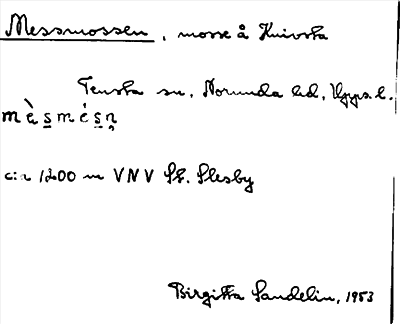 Messmossen, mosse å Knivsta
Tensta sn, Norunda hd, Upps. l.
mὲsmésn̥
c:a 1200 m VNV St. Slesby
Birgitta Sandelin, 1953